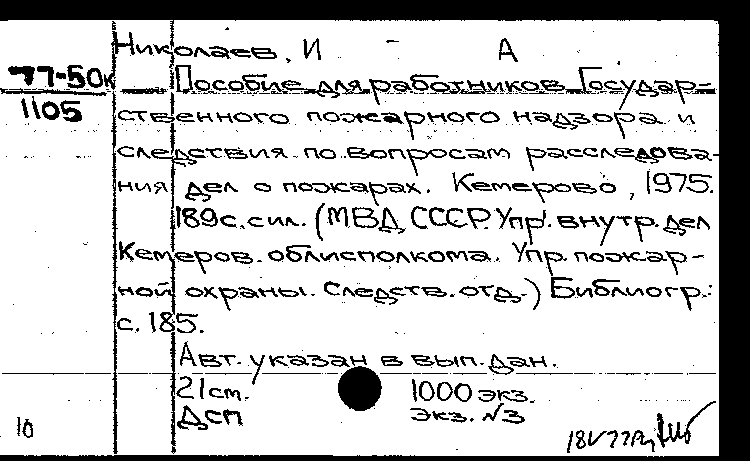 Николаев, И - А
77-50к Пособие для работников Государ-
1105 ственного пожарного надзора и
следствия по вопросам расследова-
ния дел о пожарах. Кемерово, 1975.
189с. с ил. (МВД СССР. Упр. внутр. дел
Кемеров. облисполкома. Упр. пожар-
ной охраны. Следств. отд.) Библиогр.:
с. 185.
Авт. указан в вып. дан.
21 см. 1000 экз.
ДСП экз. №3
10